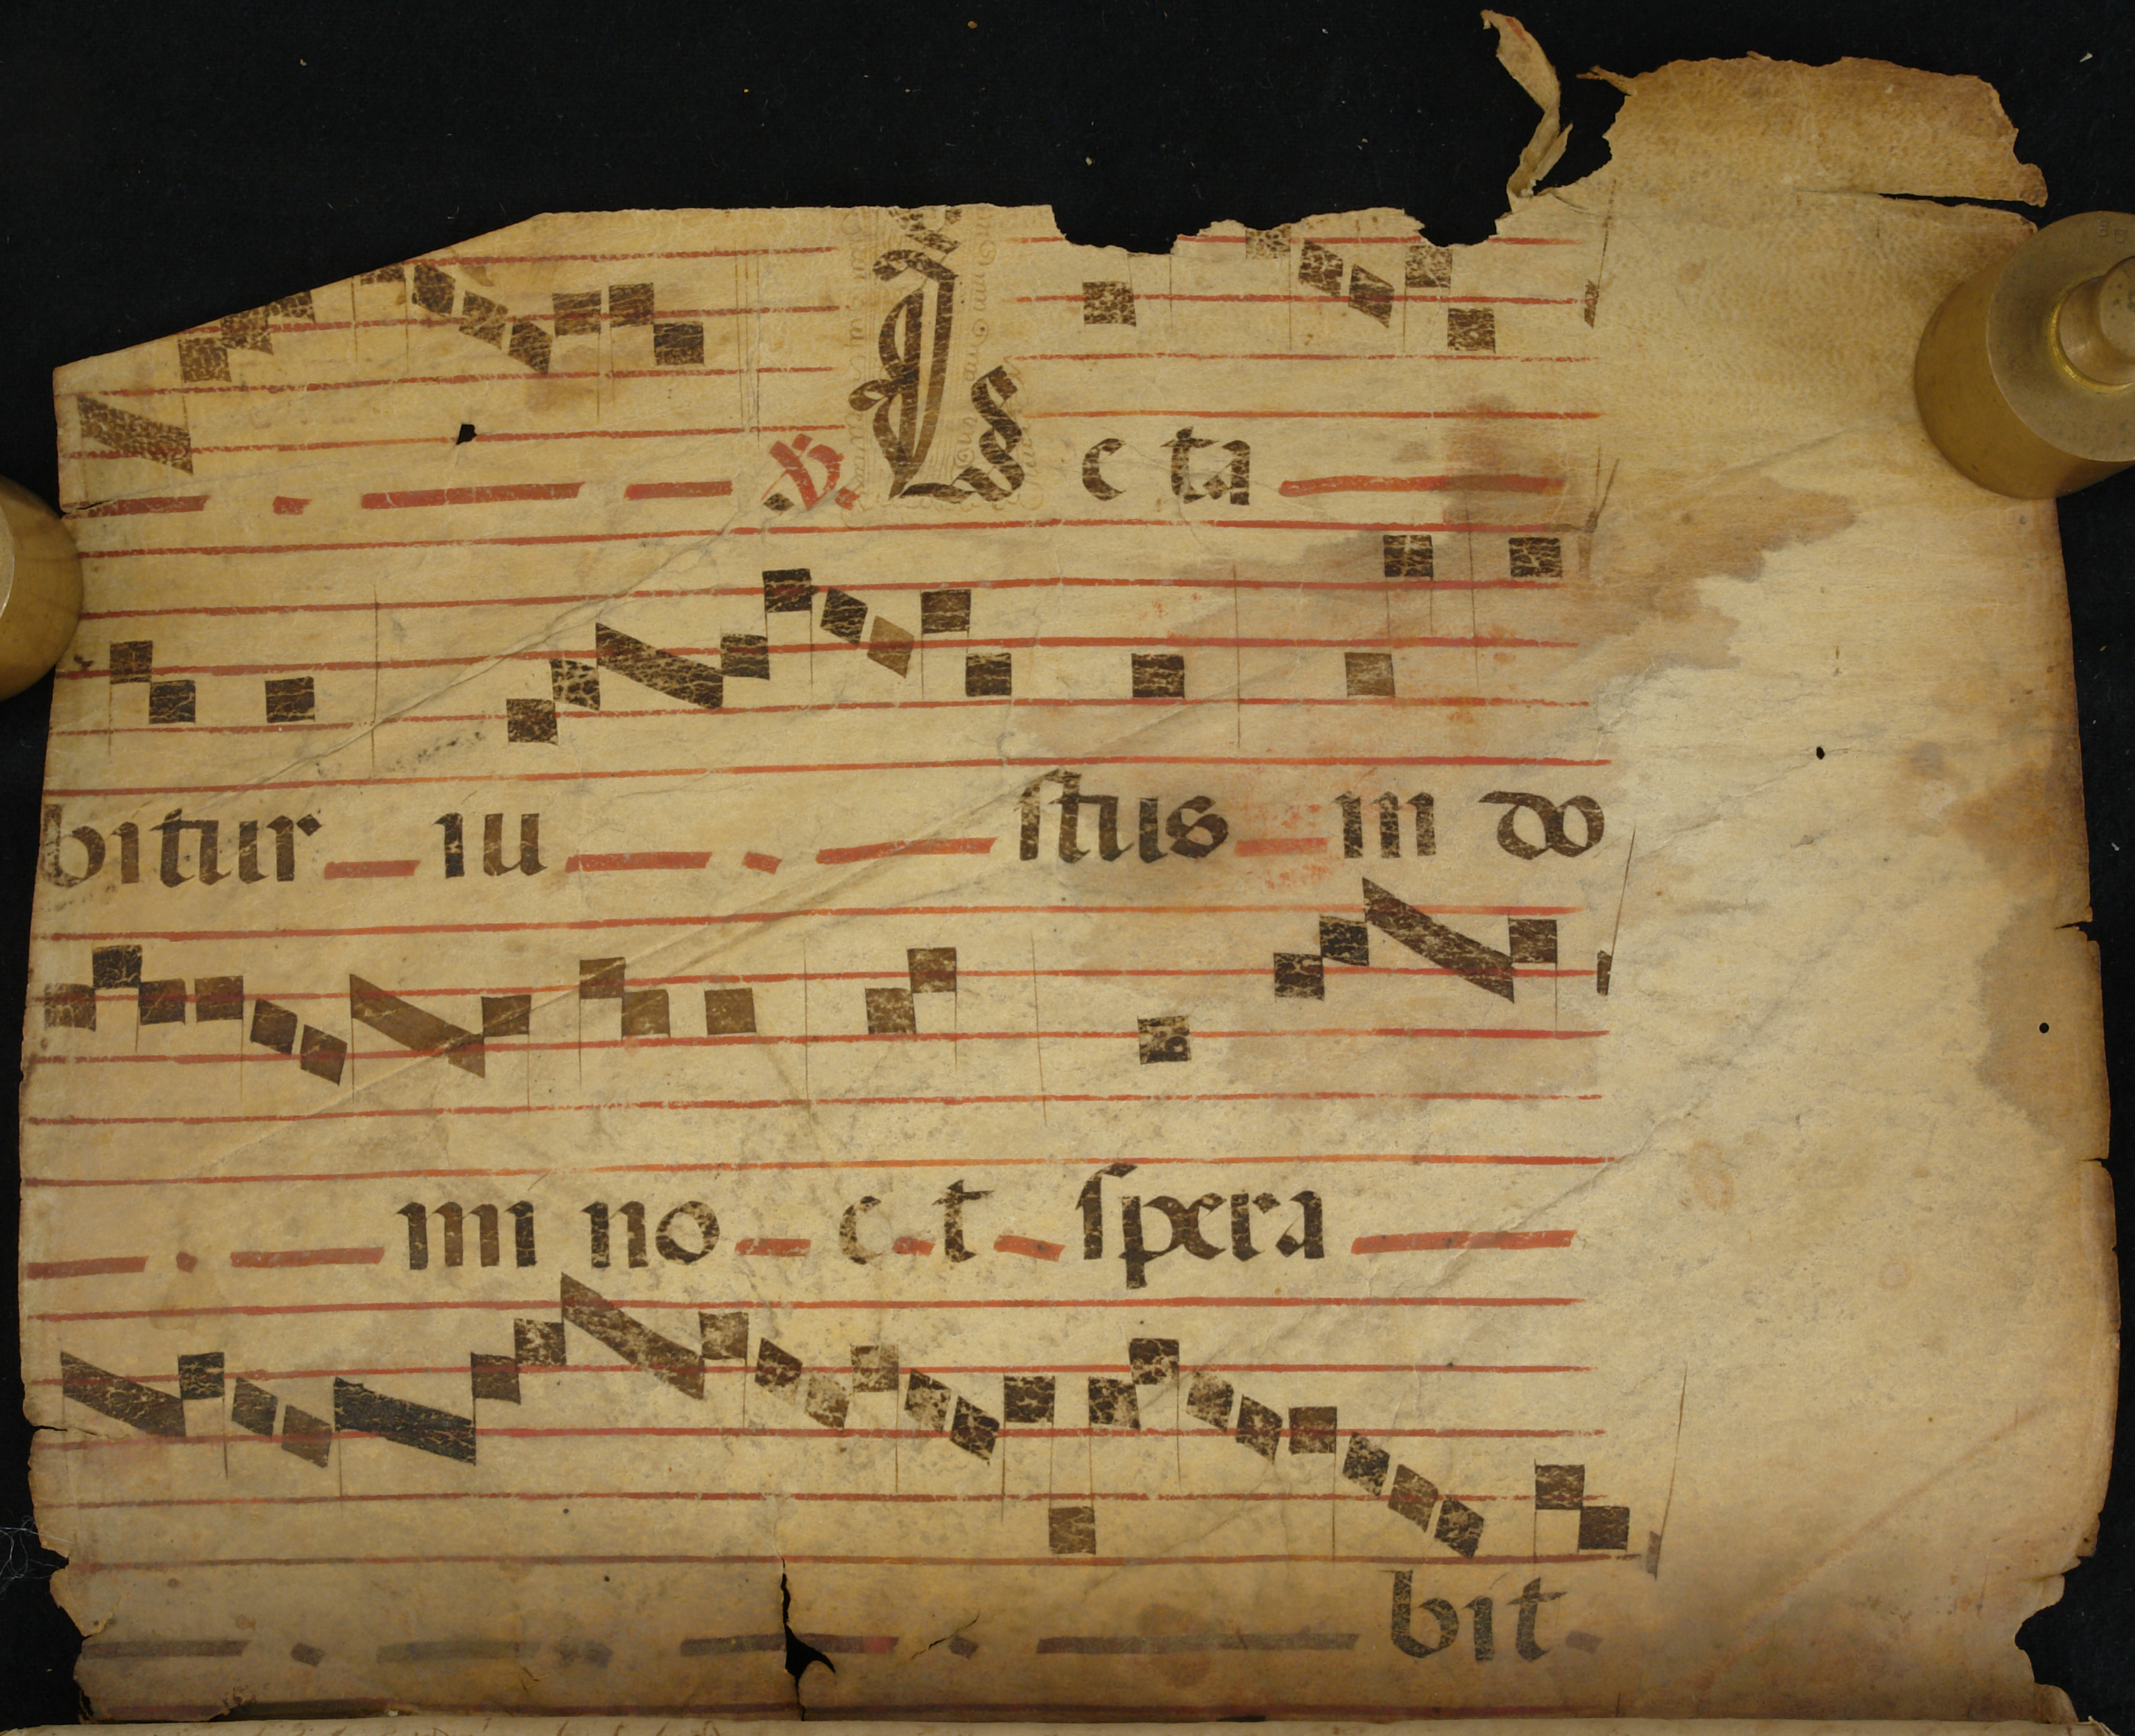 ℣. L c ta
bitur iu stus in do
mi no e t spera
bit